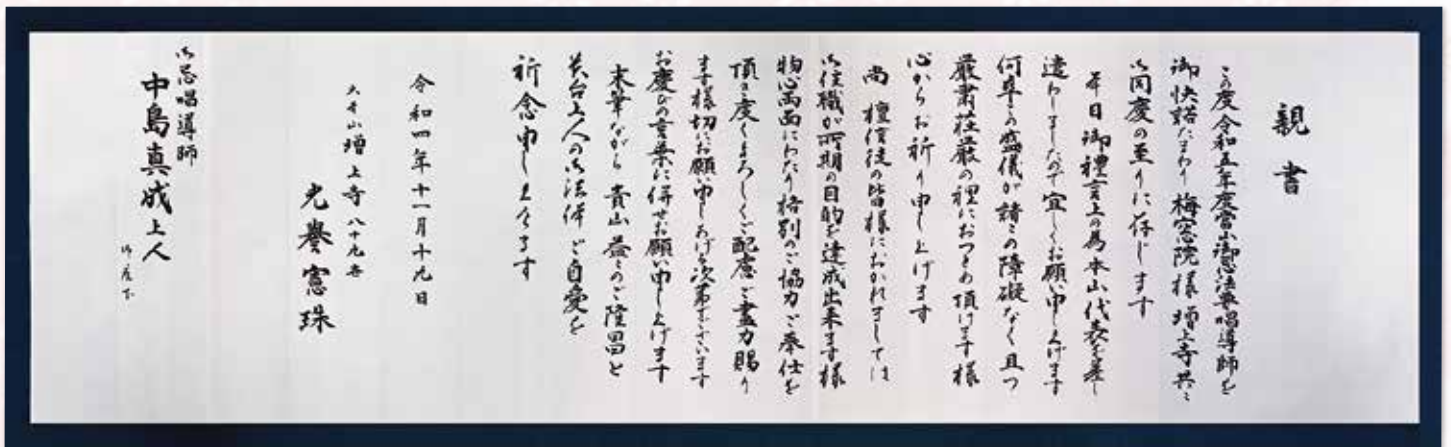 親書
この度令和五年度當山御忌法要唱導師を
御快諾たまわり梅窓院様増上寺共々
御同慶の至りに存じます
本日御禮言上の為本山代表を差し
遣わしましたので宜しくお願い申し上げます
何卒この盛儀が諸々の障礙なく且つ
厳粛荘厳の裡におつとめ頂けます様
心からお祈り申し上げます
尚檀信徒の皆様におかれましては
御住職が所期の目的を達成出来ます様
物心両面にわたり格別のご協力ご奉仕を
頂き度くよろしくご配慮ご盡力賜り
ます様切にお願い申しあげる次第でございます
お慶びの言葉に併せお願い申し上げます
末筆ながら貴山益々のご隆昌と
貴台上人の御法体ご自愛を
祈念申し上げます
令和四年十一月十九日
大本山増上寺八十九世
光誉憲珠
御忌唱導師
中島真成上人